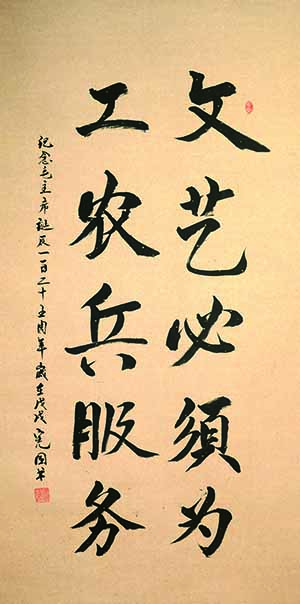 文艺必須为
工农兵服务
纪念毛主席誕辰一百二十五周年歲在戊戌